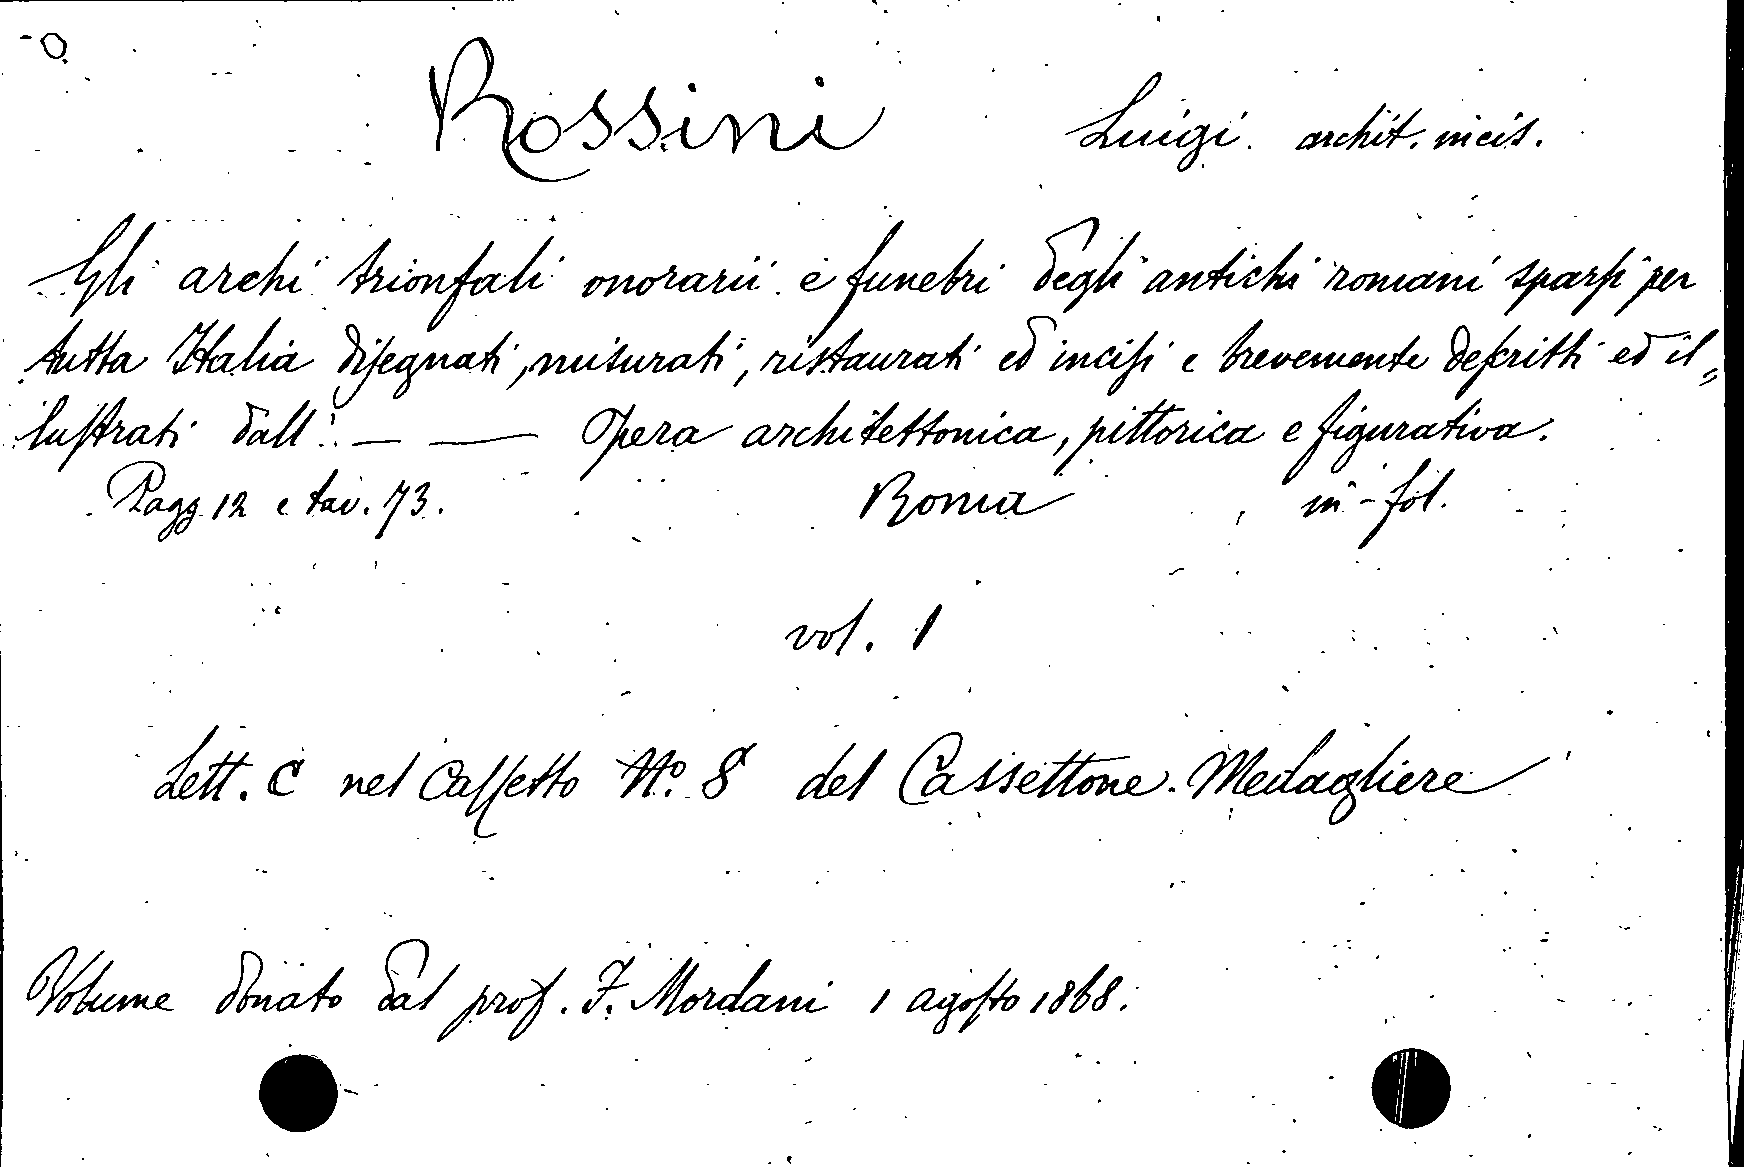 Rossini Luigi. archit. incis.
Gli archi trionfali onorarii e funebri degli antichi romani sparsi per
tutta Italia disegnati, misurati, ristaurati ed incisi e brevemente descritti ed il„
lustrati dall': — — Opera architettonica, pittorica e figurativa.
Pagg. 12 e tav. 73. Roma , in-fol.
vol. 1
Lett. C nel Cassetto N.º 8 del Cassettone-Medagliere
Volume donato dal prof. F. Mordani 1 agosto 1868.